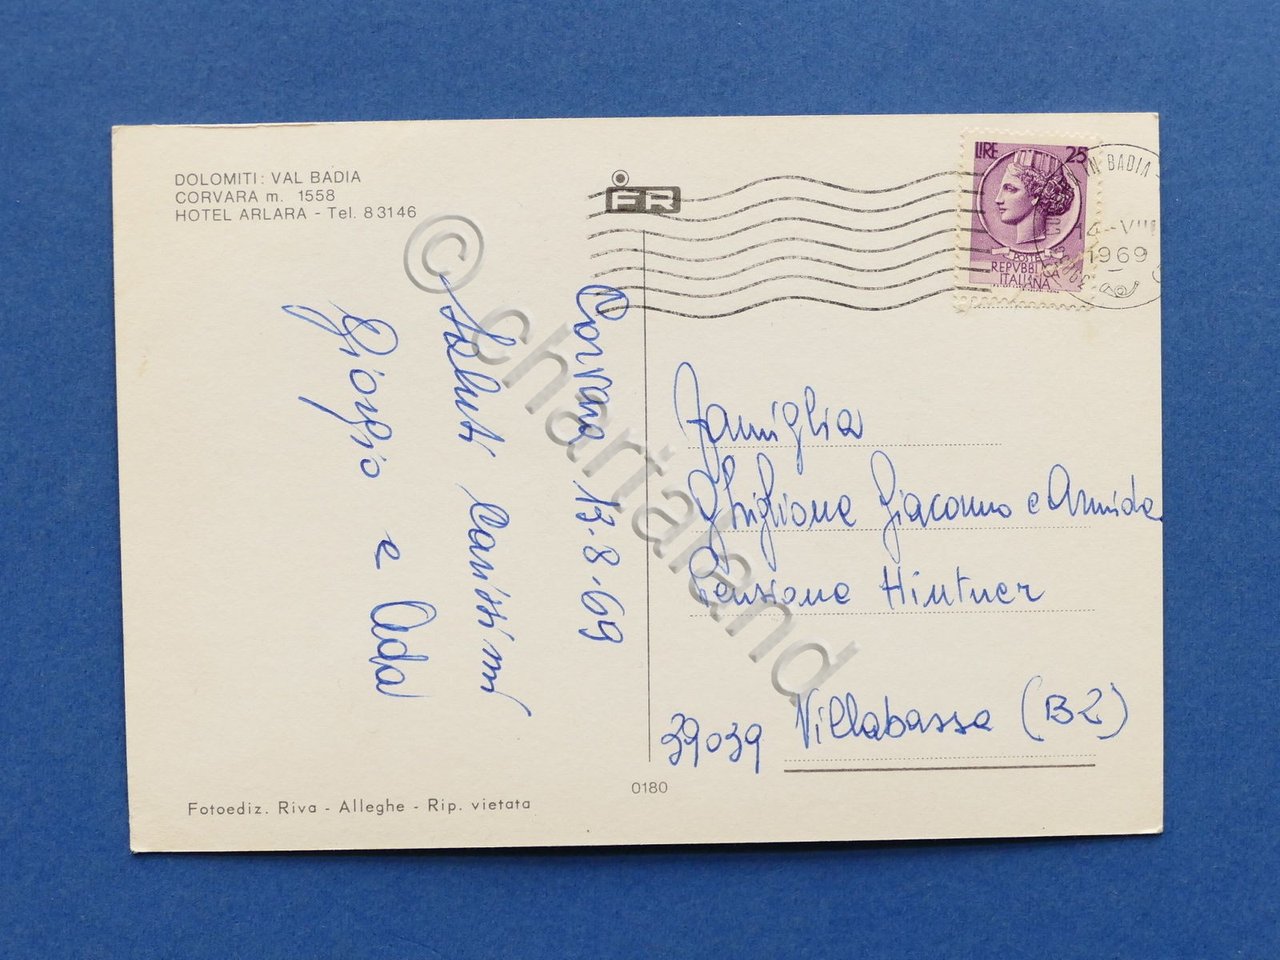 DOLOMITI: VAL BADIA
CORVARA m. 1558
HOTEL ARLARA - Tel. 83146
FR
LIRE 25
POSTE
REPVBBLICA
ITALIANA
IN BADIA
14-VIII
1969
Corvara 13-8-69
Saluti carissimi
Giorgio e Ada
Famiglia
Ghiglione Giacomo e Armida
Pensione Hintner
39039 Villabassa (BZ)
0180
Fotoediz. Riva - Alleghe - Rip. vietata
© chartaland